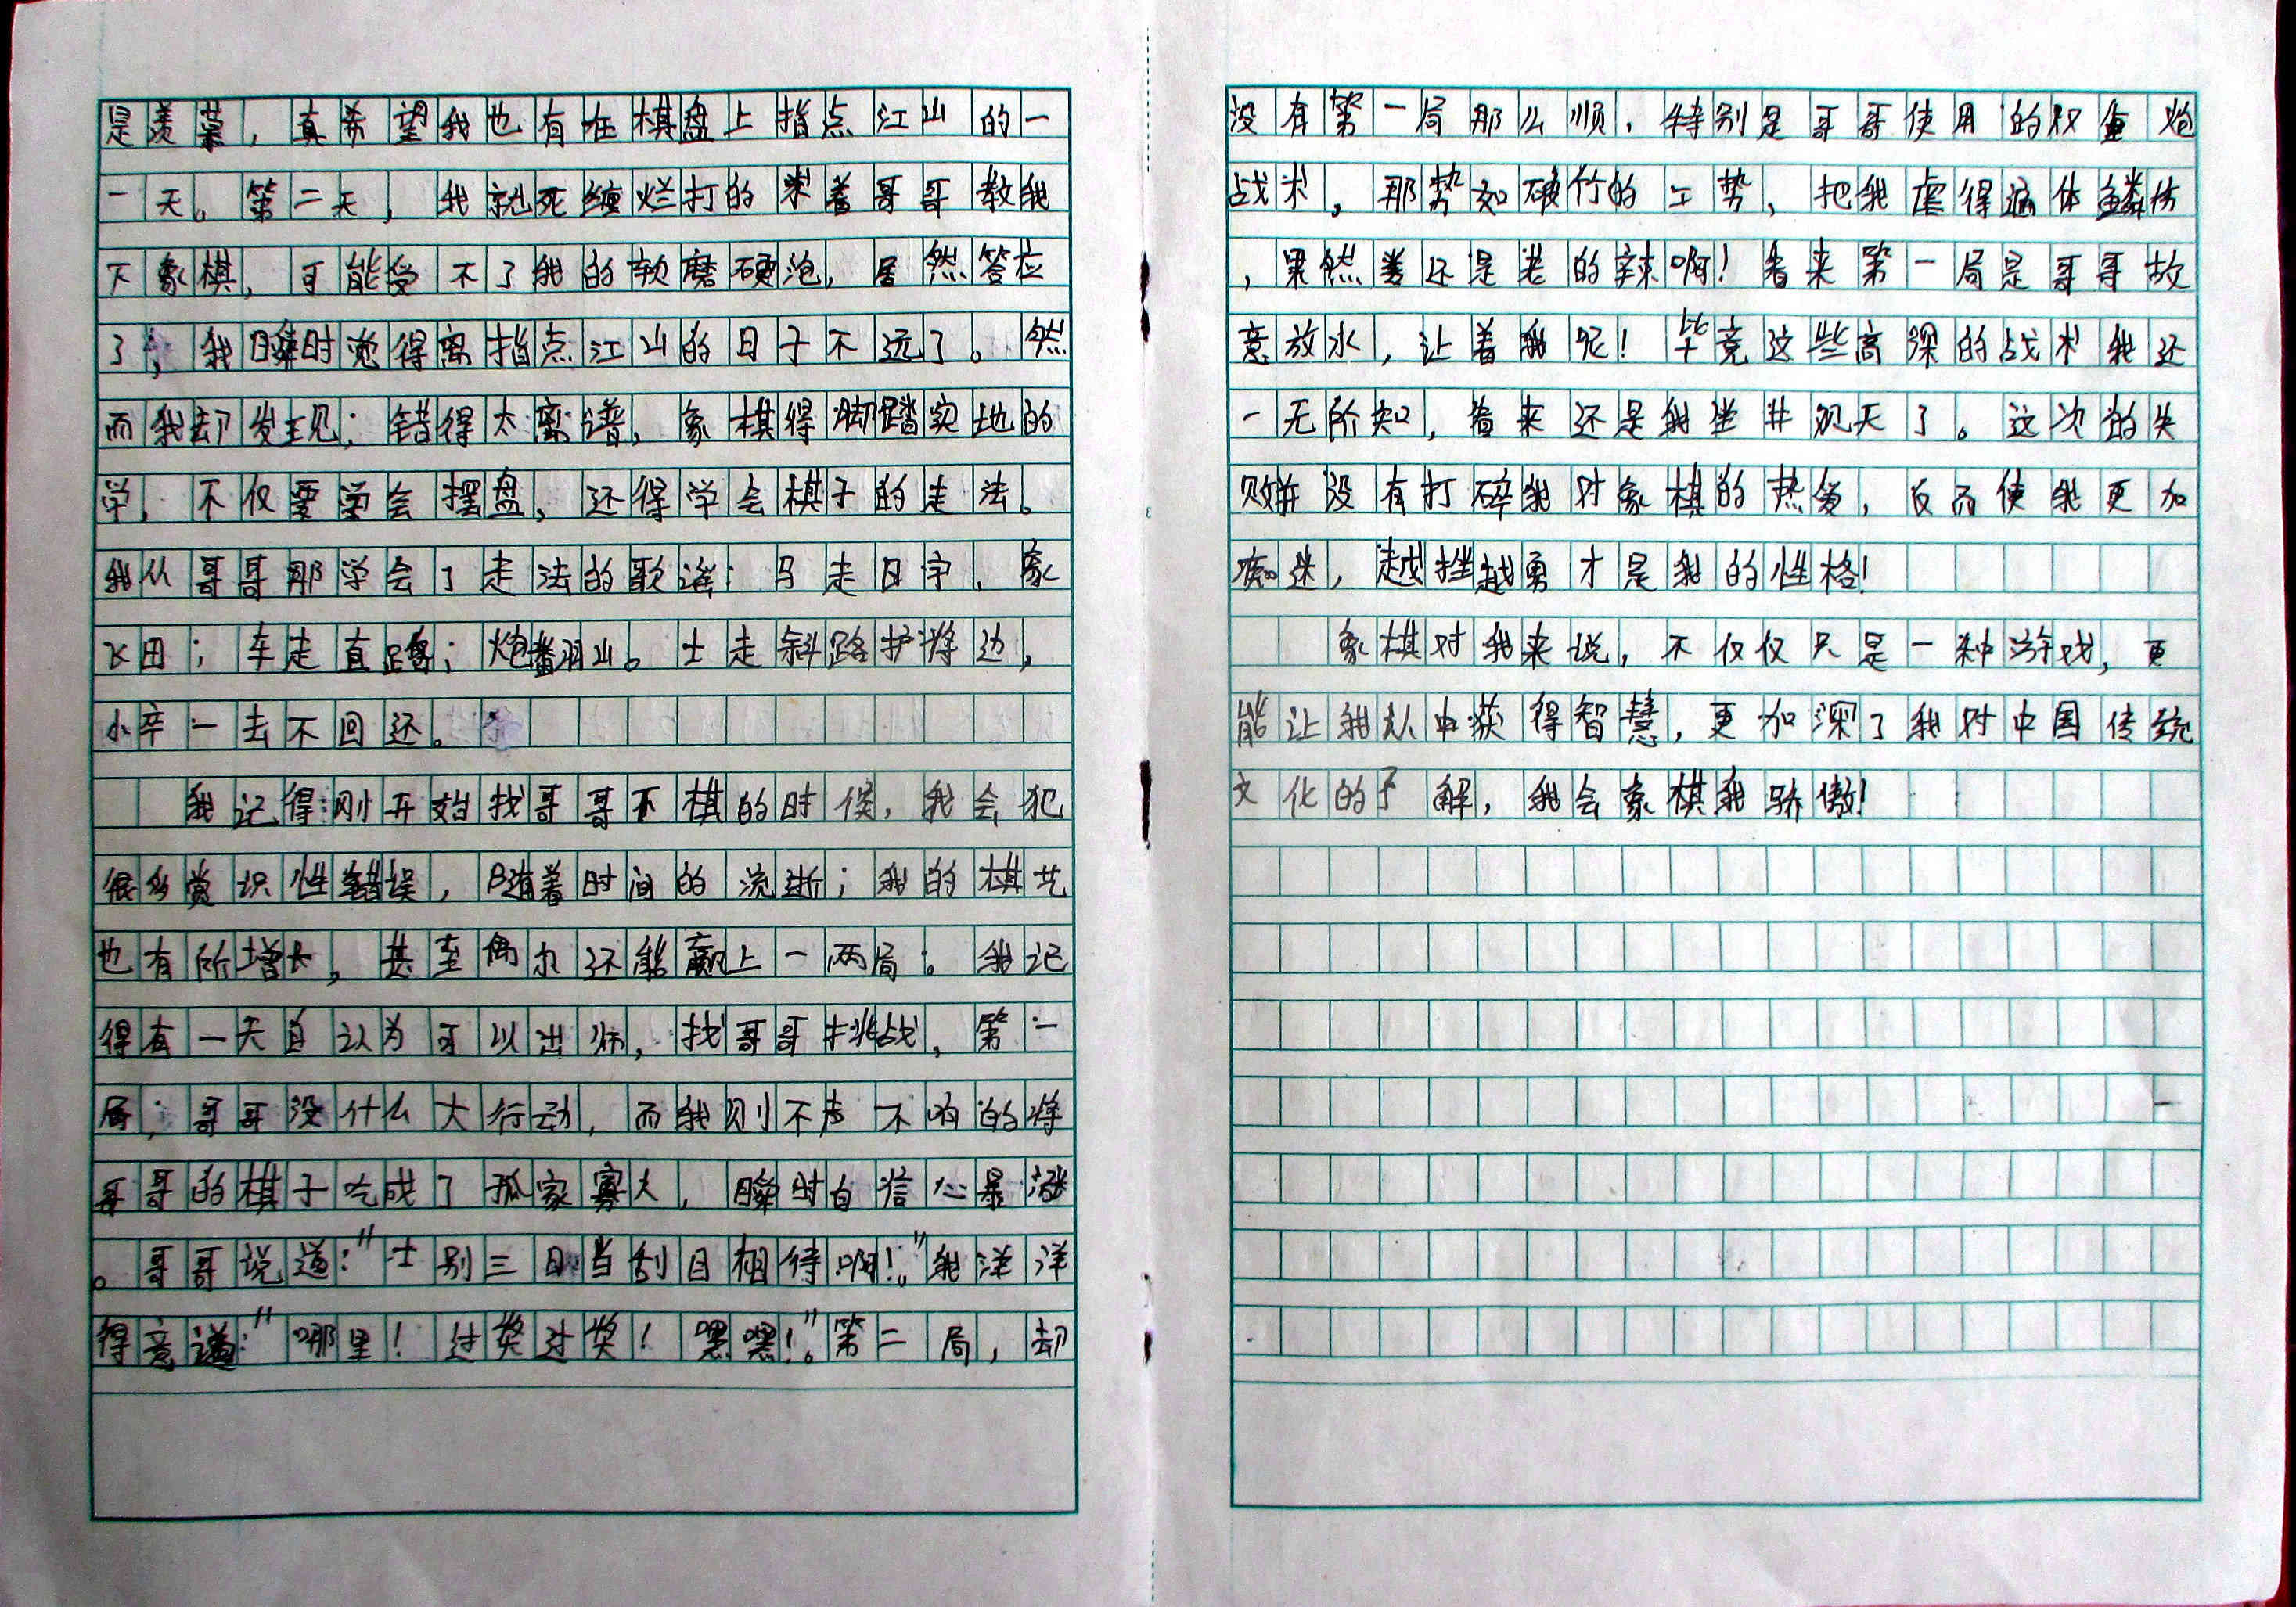 是羡慕，真希望我也有在棋盘上指点江山的一
一天。第二天，我就死缠烂打的求着哥哥教我
下象棋，可能受不了我的软磨硬泡，居然答应
了，我瞬时觉得离指点江山的日子不远了。然
而我却发现；错得太离谱，象棋得脚踏实地的
学，不仅要学会摆盘，还得学会棋子的走法。
我从哥哥那学会了走法的歌谣：马走日字，象
飞田；车走直路；炮翻山。士走斜路护将边，
小卒一去不回还。
我记得刚开始找哥哥下棋的时候，我会犯
很多常识性错误，随着时间的流逝；我的棋艺
也有所增长，甚至偶尔还能赢上一两局。我记
得有一天自认为可以出师，找哥哥挑战，第一
局，哥哥没什么大行动，而我则不声不响的将
哥哥的棋子吃成了孤家寡人，瞬时自信心暴涨
。哥哥说道："士别三日当刮目相待啊！。"我洋洋
得意道："哪里！过奖过奖！嘿嘿！。"第二局，却
没有第一局那么顺，特别是哥哥使用的双重炮
战术，那势如破竹的攻势，把我虐得遍体鳞伤
，果然姜还是老的辣啊！看来第一局是哥哥故
意放水，让着我呢！毕竟这些高深的战术我还
一无所知，看来还是我坐井观天了。这次的失
败并没有打碎我对象棋的热爱，反而使我更加
痴迷，越挫越勇才是我的性格！
象棋对我来说，不仅仅只是一种游戏，更
能让我从中获得智慧，更加深了我对中国传统
文化的了解，我会象棋我骄傲！